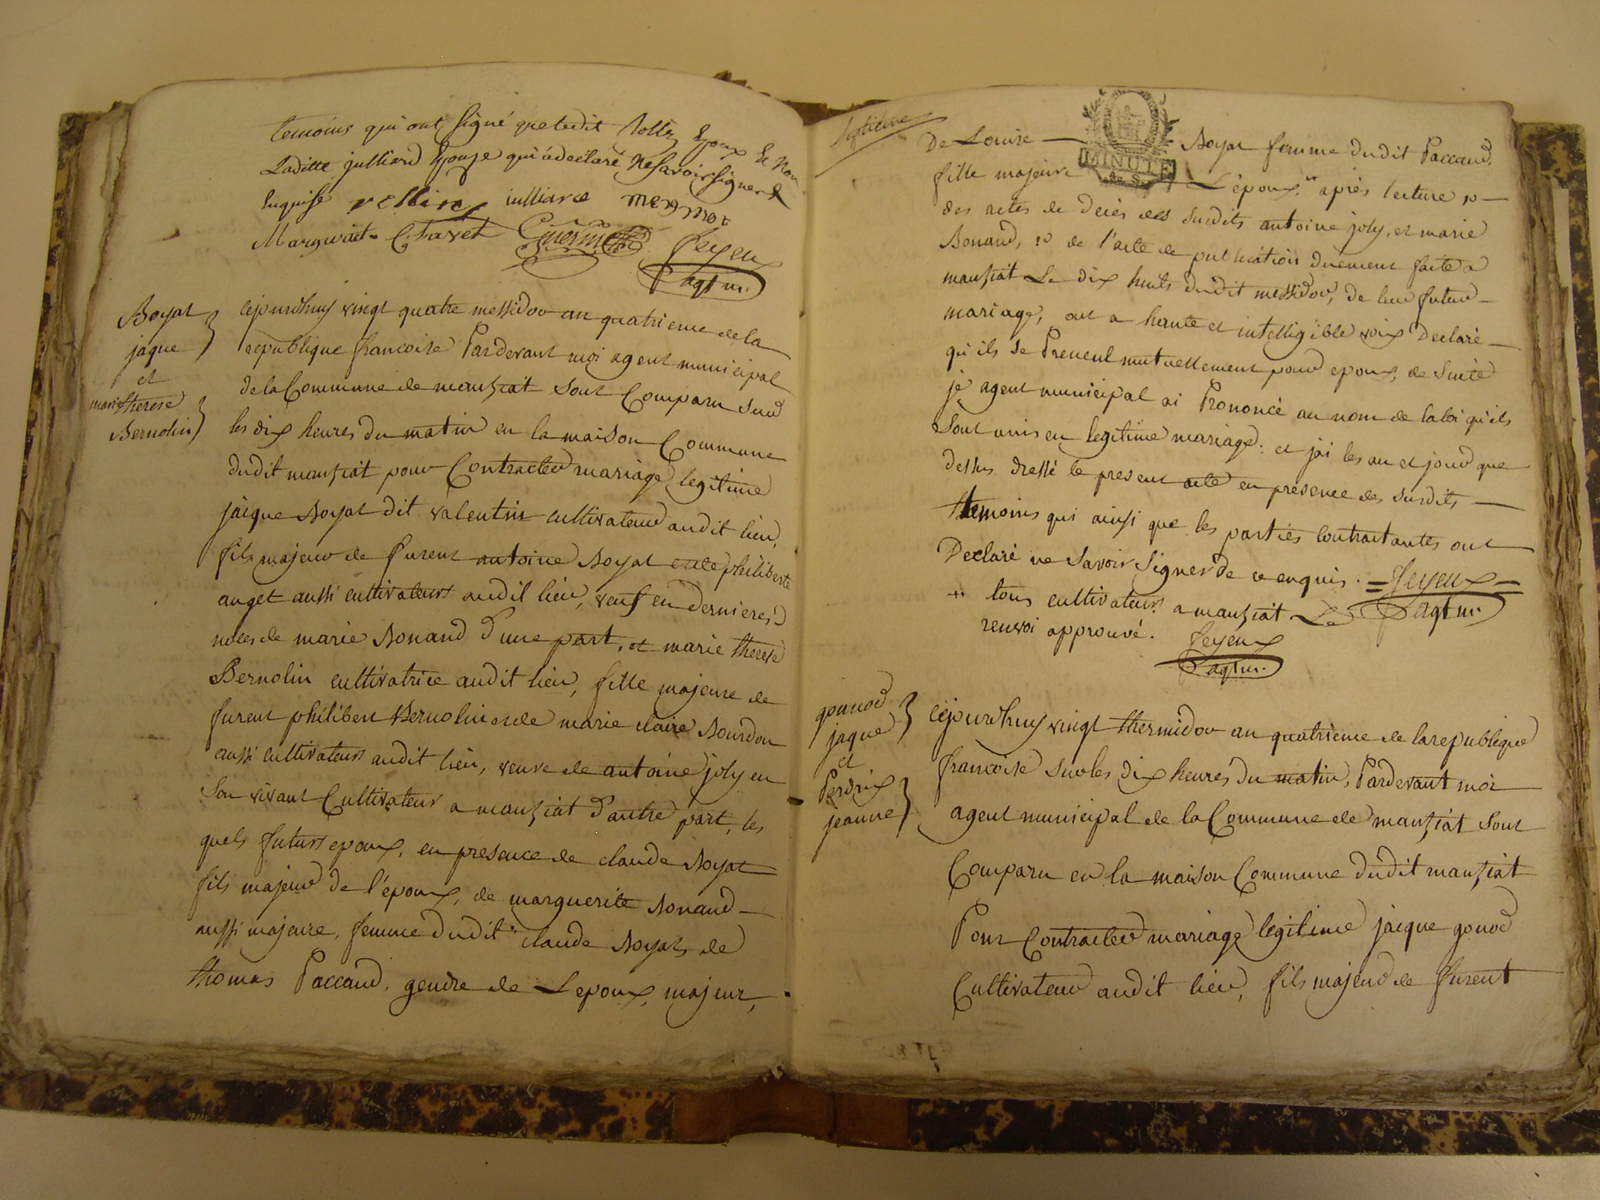 temoins qui ont signé que ledit Époux et non
Laditte julliard Epouze qui a declaré ne savoir signer de
Enquise julliard
Margueritte Chavet
Feyeux
agt m.
Boyat
jaque
et
marie therese
Bernolin
cejourdhuy vingt quatre messidor an quatrieme de la
republique francoise Pardevant moi agent municipal
de la Commune de manziat sont Comparu sur
les dix heures du matin en la maison Commune
dudit manziat pour Contracter mariage legitime
jacque Boyat dit valentin cultivateur audit lieu,
fils majeur de furent antoine Boyat et de philiberte
auget aussi cultivateurs audit lieu, veuf en dernieres
noces de marie Bonand d'une part, et marie therese
Bernolin cultivatrice audit lieu, fille majeure de
furent philibert Bernolin et de marie claire Bourdon
aussi cultivateurs audit lieu, veuve de antoine joly en
son vivant Cultivateur a manziat d'autre part, les
quels futurs epoux, en presence de claude Boyat
fils majeur de l'epoux, de marguerite Bonand
aussi majeure, femme dudit claude Boyat, de
thomas Paccaud, gendre de L'epoux, majeur,
septieme
De Louise Boyat femme dudit Paccaud,
MINUTE
fille majeure de L'époux, après lecture 1o
des actes de decès des susdits antoine joly, et marie
Bonand, 2o de l'acte de publication duement faite a
manziat Le dix huit dudit messidor, de leur futur
mariage, ont a haute et intelligible voix Declaré
qu'ils se Prenent mutuellement pour epoux, de suite
je agent municipal ai Prononcé au nom de la loi qu'ils
sont unis en legitime mariage. et j'ai les an et jour que
dessus dressé le present acte en presence des susdits
temoins qui ainsi que les parties contractantes ont
Declaré ne savoir signer de ce enquis. = Feyeux =
agt m.
+ tous cultivateurs a manziat Le
renvoi approuvé.
Feyeux
agt m.
gonod
jaque
et
Perdrix
jeanne
cejourdhuy vingt thermidor an quatrieme de la republique
francoise sur les dix heures du matin, Pardevant moi
agent municipal de la Commune de manziat sont
Comparu en la maison Commune dudit manziat
Pour Contracter mariage legitime jacque gonod
Cultivateur audit lieu, fils majeur de furent